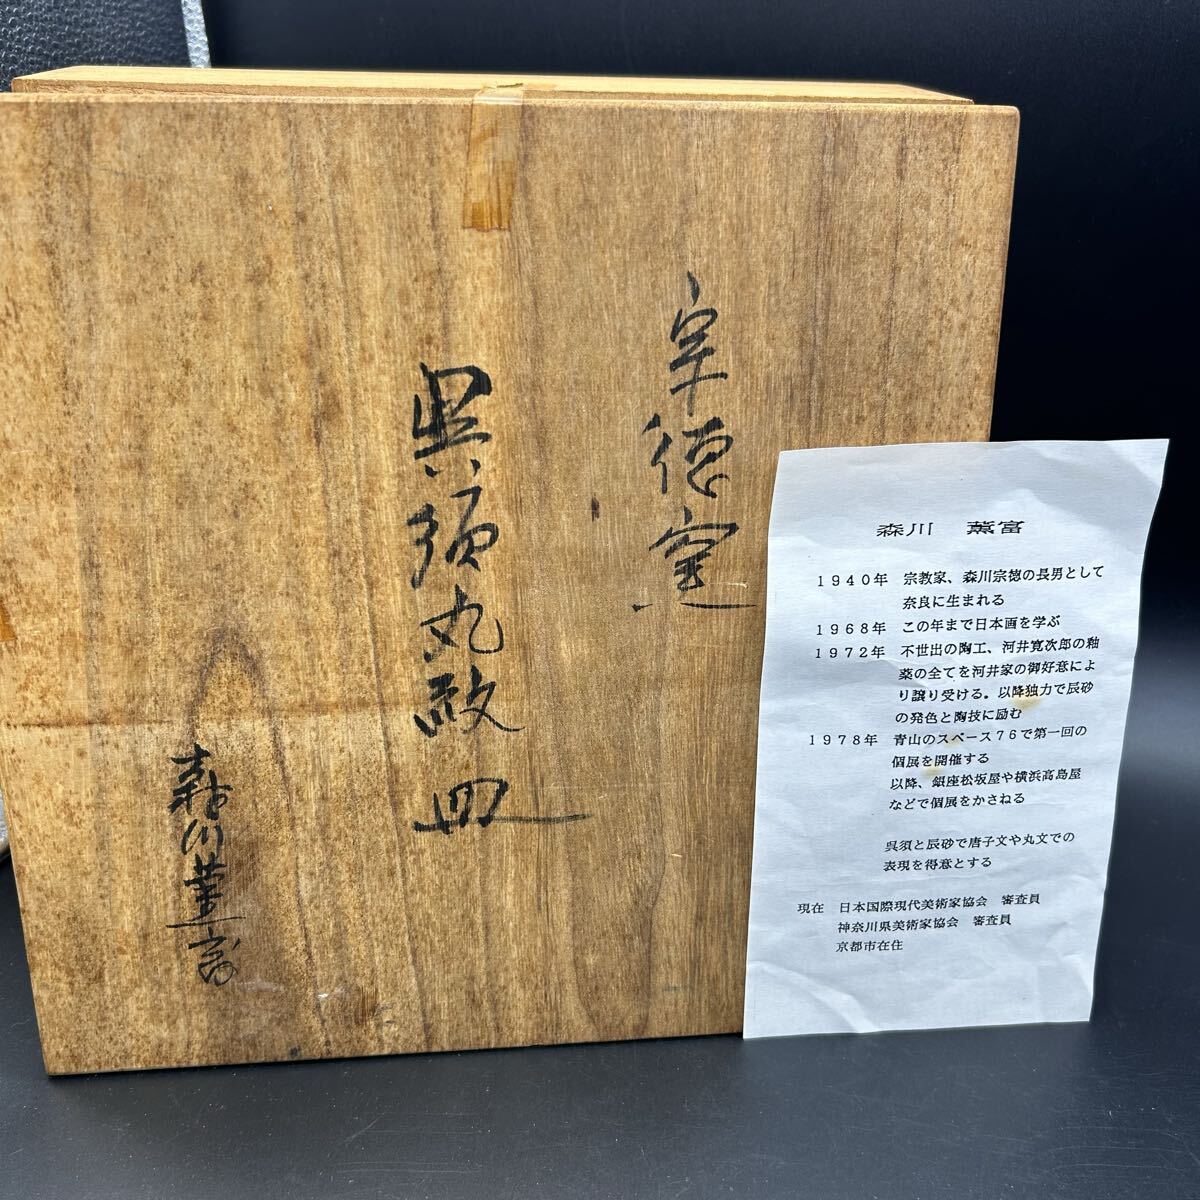 宗徳窯
呉須丸紋皿
森川薫富
森川　薫富
１９４０年　宗教家、森川宗徳の長男として
奈良に生まれる
１９６８年　この年まで日本画を学ぶ
１９７２年　不世出の陶工、河井寛次郎の釉
薬の全てを河井家の御好意によ
り譲り受ける。以降独力で辰砂
の発色と陶技に励む
１９７８年　青山のスペース７６で第一回の
個展を開催する
以降、銀座松坂屋や横浜高島屋
などで個展をかさねる
呉須と辰砂で唐子文や丸文での
表現を得意とする
現在　日本国際現代美術家協会　審査員
神奈川県美術家協会　審査員
京都市在住